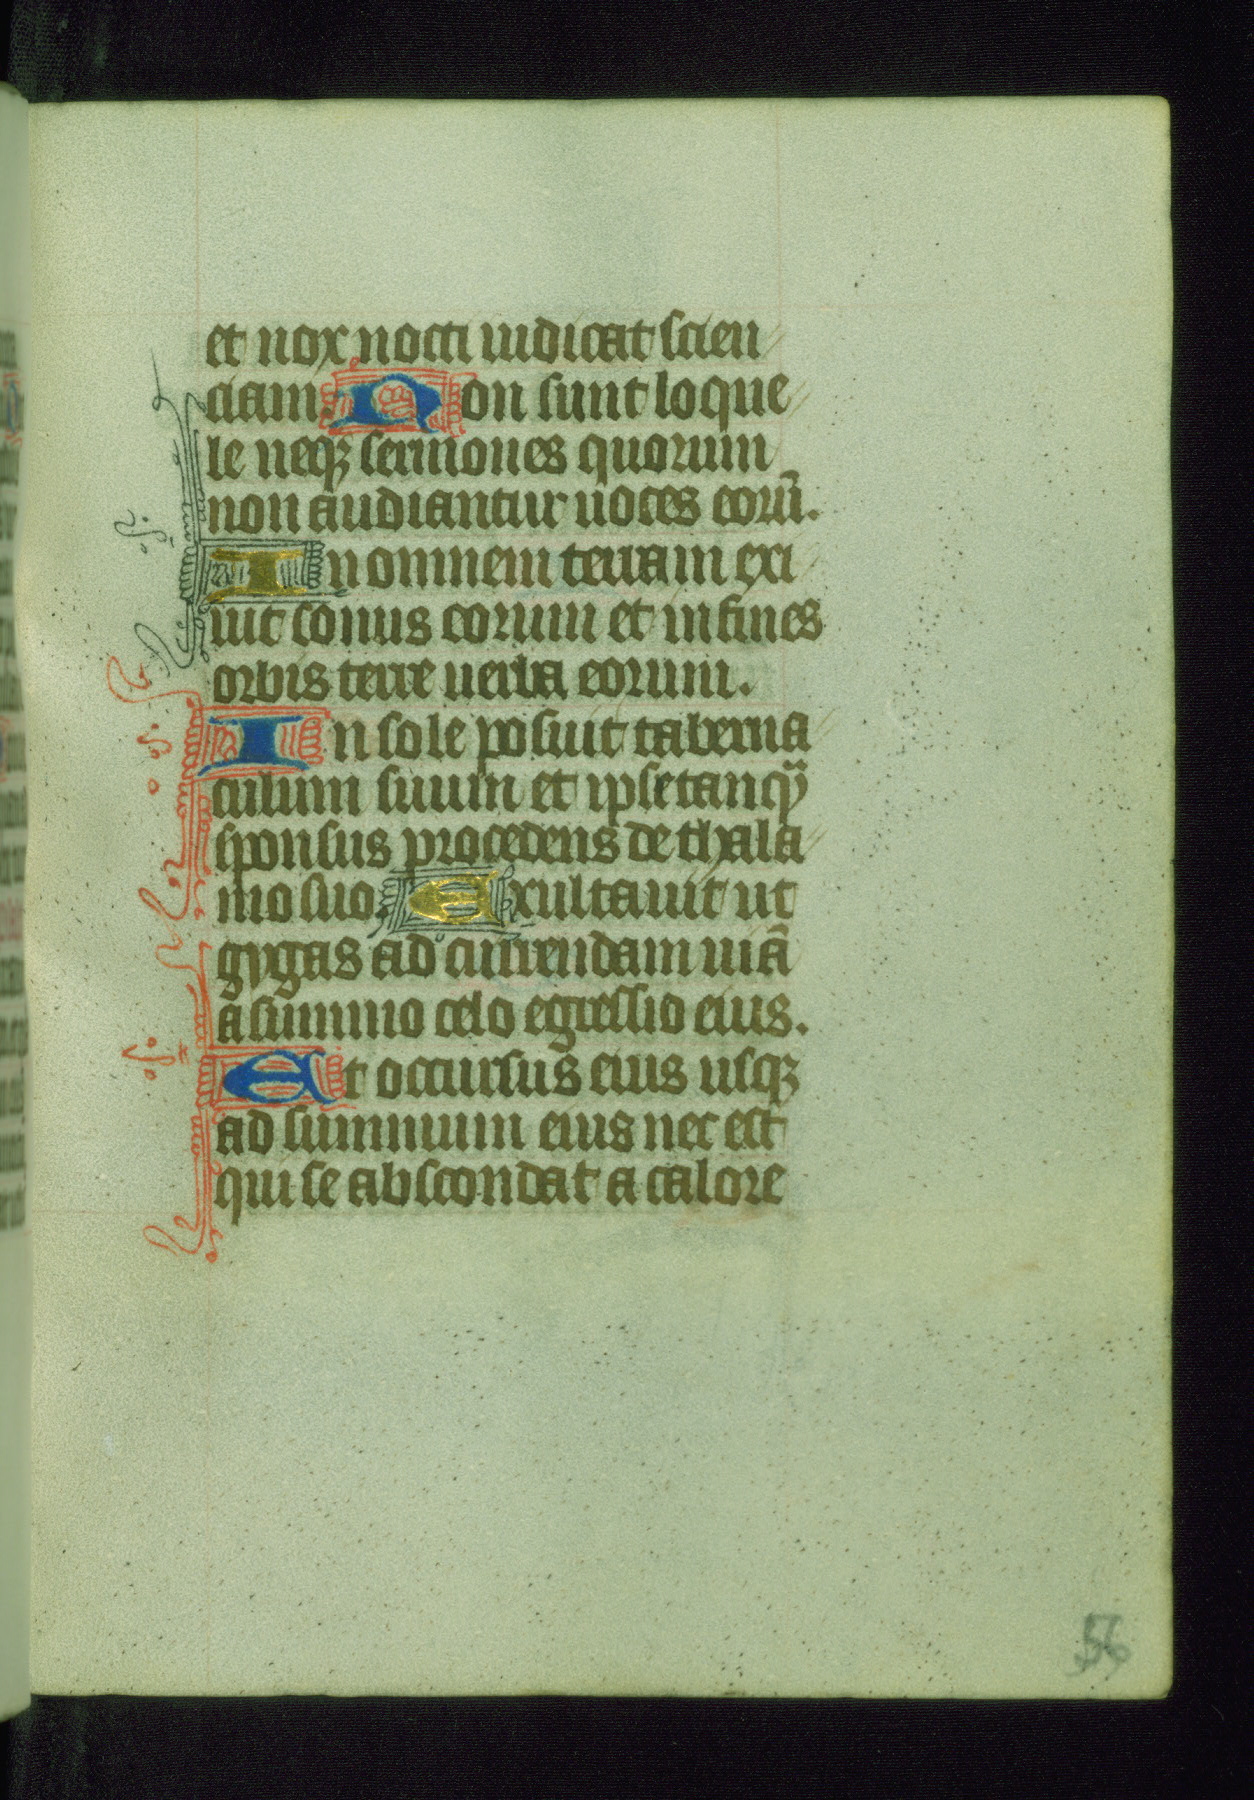 et nox nocti indicat scien
ciam. Non sunt loque
le neqꝫ sermones quorum
non audiantur uoces eorū.
In omnem terram exi
uit sonus eorum et in fines
orbis terre uerba eorum.
In sole posuit taberna
culum suum et ipse tanqꝫ
sponsus procedens de thala
mo suo. Exultauit ut
gygas ad currendam uiā
a summo celo egressio eius.
Et occursus eius usqꝫ
ad summum eius nec est
qui se abscondat a calore
56